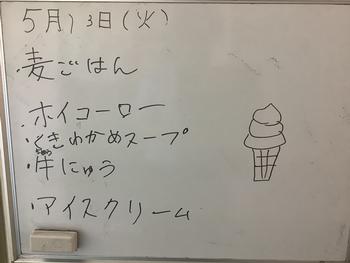 5月13日(火)
・麦ごはん
・ホイコーロー
・くきわかめスープ
・牛にゅう
・アイスクリーム